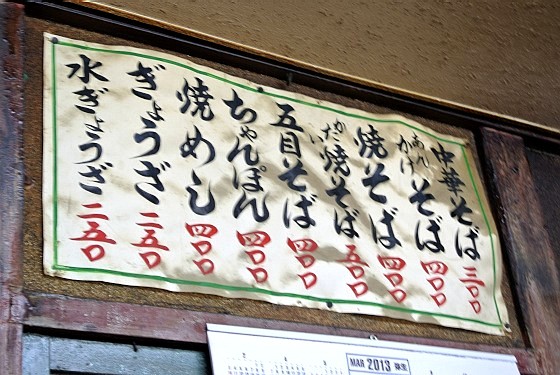 中華そば 三〇〇
あんかけそば 四〇〇
焼そば 四〇〇
かたい焼そば 五〇〇
五目そば 四〇〇
ちゃんぽん 四〇〇
焼めし 四〇〇
ぎょうざ 二五〇
水ぎょうざ 二五〇
MAR 2013 弥生